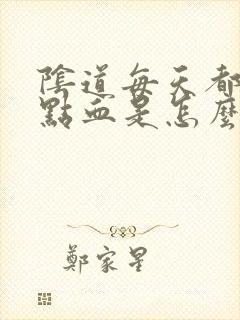 陰道每天都
點血是怎麼
鄭家星